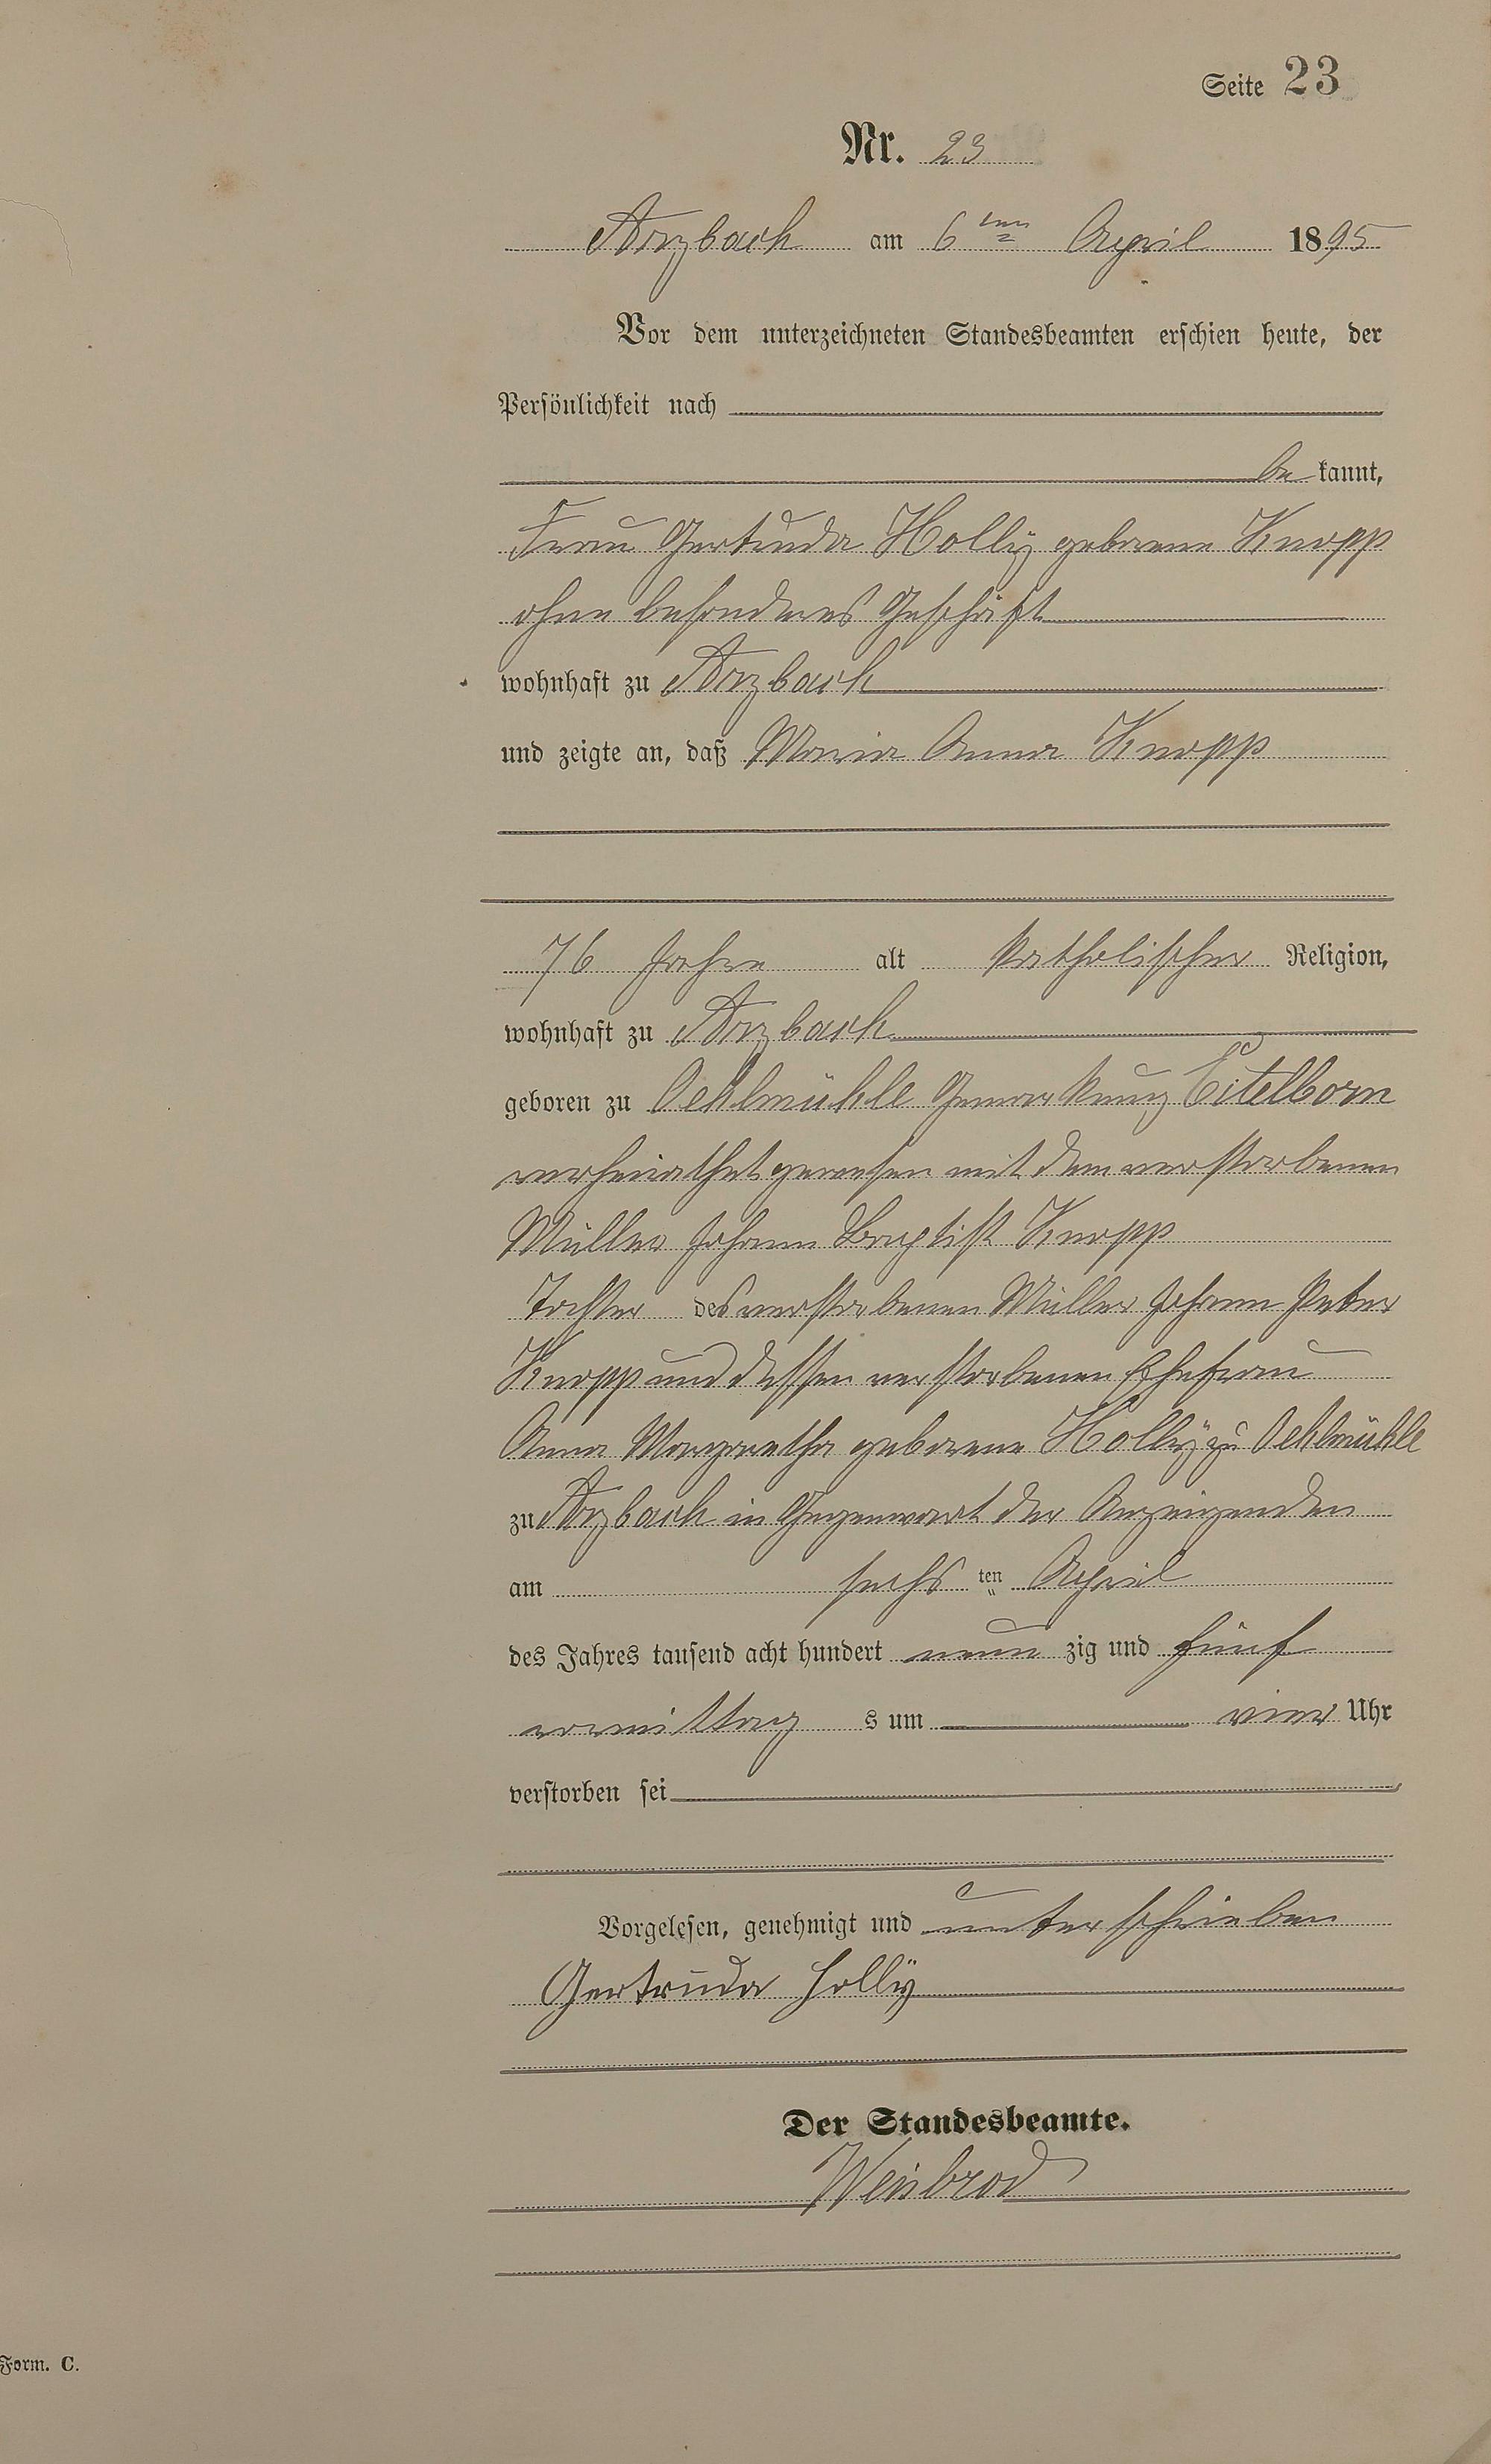 Seite 23
Nr. 23
Arzbach am 6ten April 1895
Vor dem unterzeichneten Standesbeamten erschien heute, der
Persönlichkeit nach
be kannt,
Frau Gertruda Hollÿ geborene Knopp
ohne besonderes Geschäft
wohnhaft zu Arzbach
und zeigte an, daß Maria Anna Knopp
76 Jahre alt katholischer Religion,
wohnhaft zu Arzbach
geboren zu Oehlmühle Gemarkung Eitelborn
verheirathet gewesen mit dem verstorbenen
Müller Johann Baptist Knopp
Tochter des verstorbenen Müller Johann Peter
Knopp und dessen verstorbenen Ehefrau
Anna Margaretha geborene Hollÿ zu Oehlmühle
zu Arzbach in Gegenwart der Anzeigenden
am sechs ten April
des Jahres tausend acht hundert neun zig und fünf
vormittag s um vier Uhr
verstorben sei
Vorgelesen, genehmigt und unterschrieben
Gertruda Hollÿ
Der Standesbeamte.
Weisbrod
Form. C.